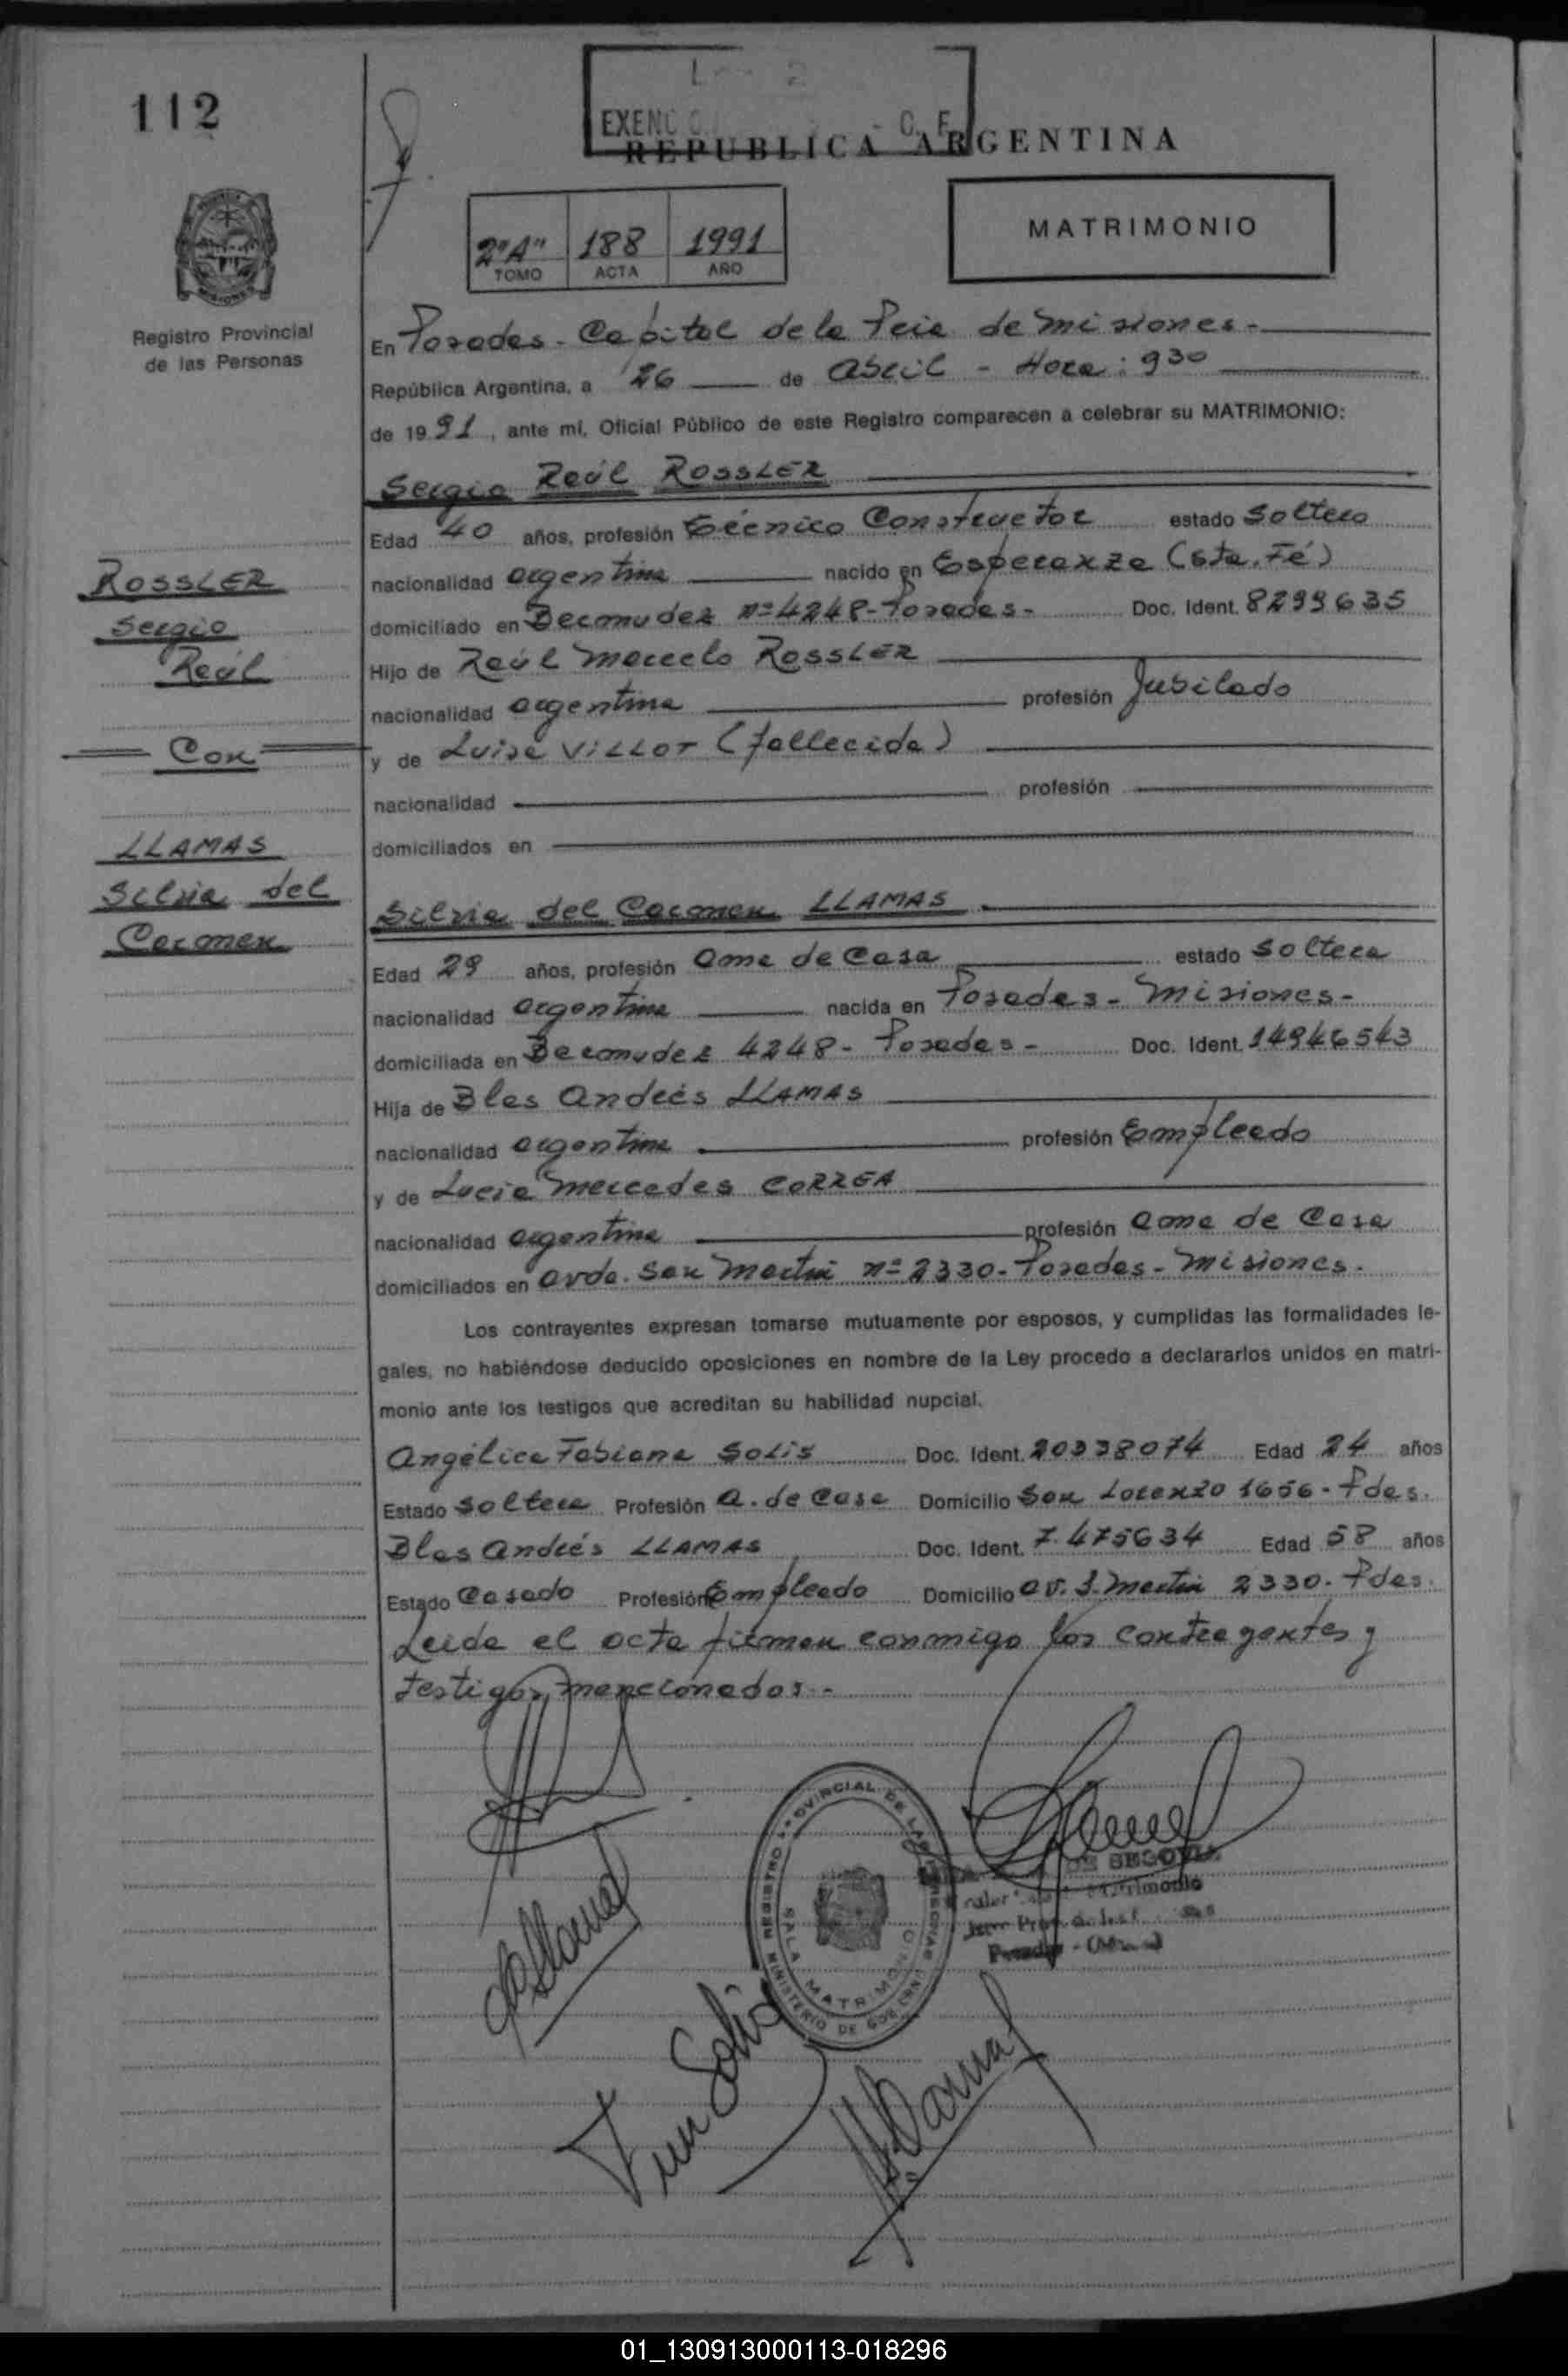 112
EXENC
REPUBLICA ARGENTINA
2º"A" 188 1991
TOMO ACTA AÑO
MATRIMONIO
MISIONES
Registro Provincial
de las Personas
En Posadas - Capital de la Pcia de Misiones -
República Argentina, a 26 de Abril - Hora: 930
de 1991, ante mí, Oficial Público de este Registro comparecen a celebrar su MATRIMONIO:
Sergio Raúl ROSSLER
Edad 40 años, profesión Técnico Constructor estado Soltero
ROSSLER
Sergio
Raúl
nacionalidad argentina nacido en Esperanza (Sta. Fé)
domiciliado en Bermudez nº 4248 - Posadas - Doc. Ident. 8299635
Hijo de Raúl Marcelo ROSSLER
nacionalidad argentina profesión Jubilado
Con
y de Luisa VILLOT (fallecida)
nacionalidad profesión
domiciliados en
LLAMAS
Silvia del
Carmen
Silvia del Carmen LLAMAS
Edad 29 años, profesión Ama de Casa estado Soltera
nacionalidad argentina nacida en Posadas - Misiones -
domiciliada en Bermudez 4248 - Posadas - Doc. Ident. 14946543
Hija de Blas Andrés LLAMAS
nacionalidad argentina profesión Empleado
y de Lucia Mercedes CORREA
nacionalidad argentina profesión Ama de Casa
domiciliados en Avda. San Martin nº 2330 - Posadas - Misiones.
Los contrayentes expresan tomarse mutuamente por esposos, y cumplidas las formalidades le-
gales, no habiéndose deducido oposiciones en nombre de la Ley procedo a declararlos unidos en matri-
monio ante los testigos que acreditan su habilidad nupcial.
Angélica Fabiana SOLIS Doc. Ident. 20338074 Edad 24 años
Estado Soltera Profesión A. de Casa Domicilio San Lorenzo 1656 - Pdas.
Blas Andrés LLAMAS Doc. Ident. 7.475634 Edad 58 años
Estado Casado Profesión Empleado Domicilio Av. S. Martin 2330 - Pdas.
Leida el acta firman conmigo los contrayentes y
testigos, mencionados.-
REGISTRO PROVINCIAL DE LAS PERSONAS
SALA MATRIMONIO
MINISTERIO DE GOBIERNO
DE SEGOVIA
Matrimonio
Posadas - (Mnes)
Solis
01_130913000113-018296